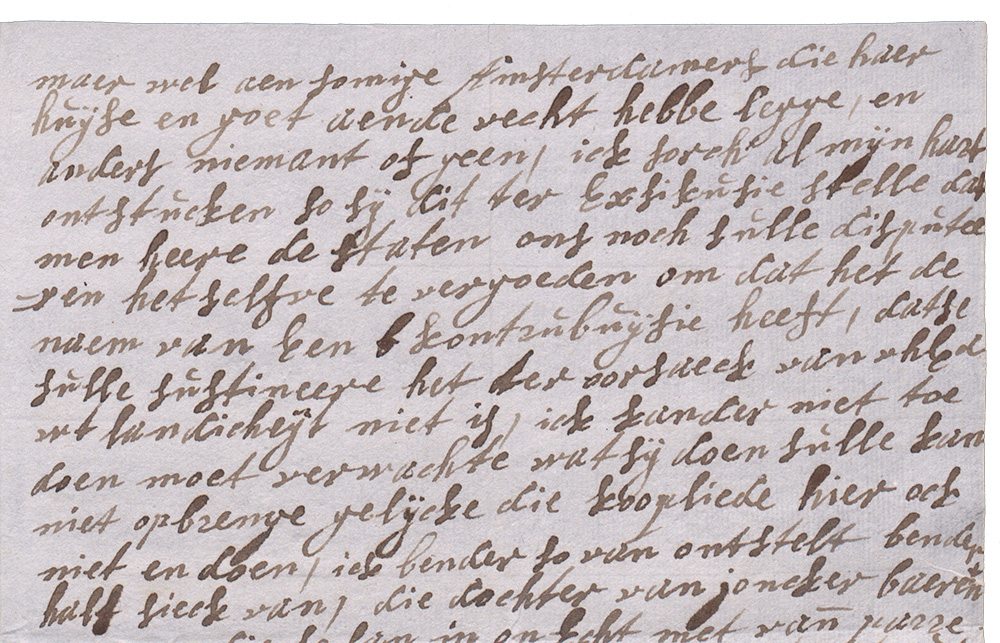 maer wel aen somige Amsterdamers die haer
huijse en goet aende vecht hebbe legge, en
anders niemant of geen, ick sorch al mijn hart
ontstucken so sij dit ter Exsikusie stelle dat
men heere de staten ons noch sulle dispute
ren het selfve te vergoeden om dat het de
naem van een kontrubuijsie heeft, datse
sulle sustineere het ter oorsaeck van
landicheijt niet is, ick kander niet toe
doen moet verwachte wat sij doen sulle kan
niet opbrenge gelijcke die koopliede hier ock
niet en doen, ick bender so van ontstelt bender
half sieck van, die dochter van joncker baeren
die so lan in on Echt met van